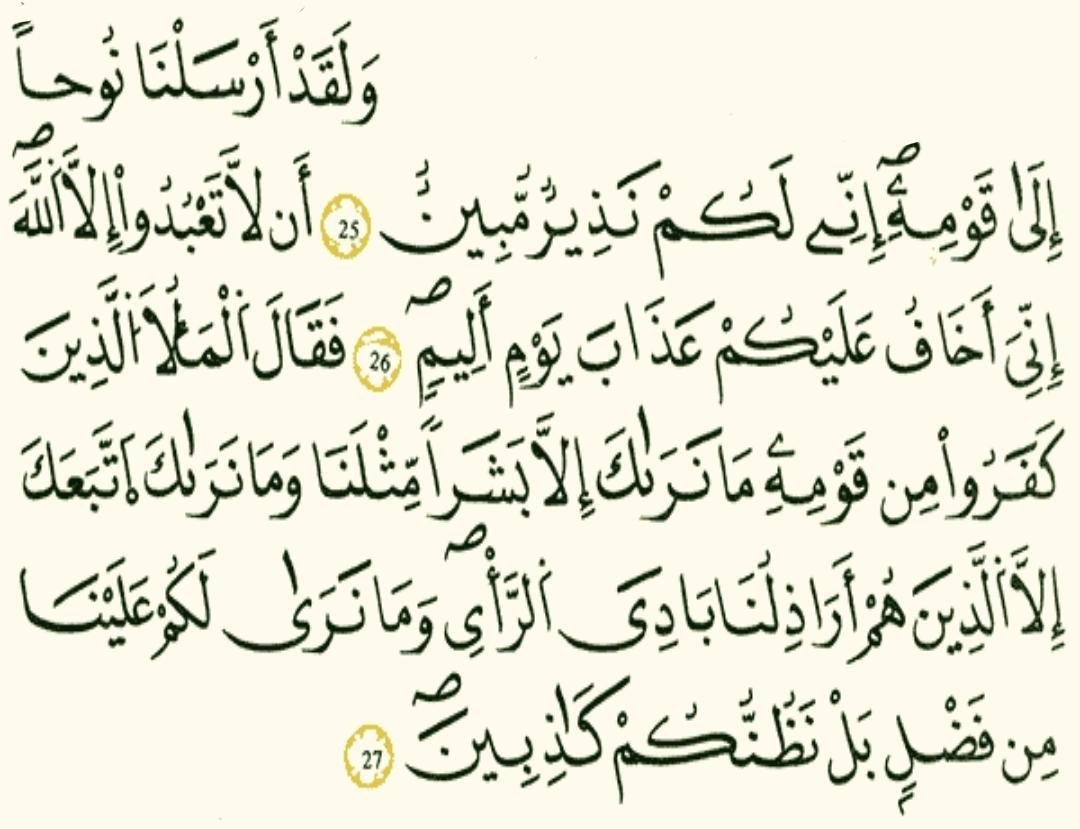 وَلَقَدْ أَرْسَلْنَا نُوحاً
إِلَىٰ قَوْمِهِۦٓ إِنِّے لَكُمْ نَذِيرٌ مُّبِينٌ 25 أَن لَّا تَعْبُدُوٓاْ إِلَّا اَ۬للَّهَۖ
إِنِّيَ أَخَافُ عَلَيْكُمْ عَذَابَ يَوْمٍ أَلِيمٍۖ 26 فَقَالَ اَ۬لْمَلَأُ اُ۬لَّذِينَ
كَفَرُواْ مِن قَوْمِهِۦ مَا نَرَىٰكَ إِلَّا بَشَراً مِّثْلَنَا وَمَا نَرَىٰكَ اَ۪تَّبَعَكَ
إِلَّا اَ۬لَّذِينَ هُمْ أَرَاذِلُنَا بَادِيَ اَ۬لرَّأْيِۖ وَمَا نَرَىٰ لَكُمْ عَلَيْنَا
مِن فَضْلٍ بَلْ نَظُنُّكُمْ كَٰذِبِينَۖ 27